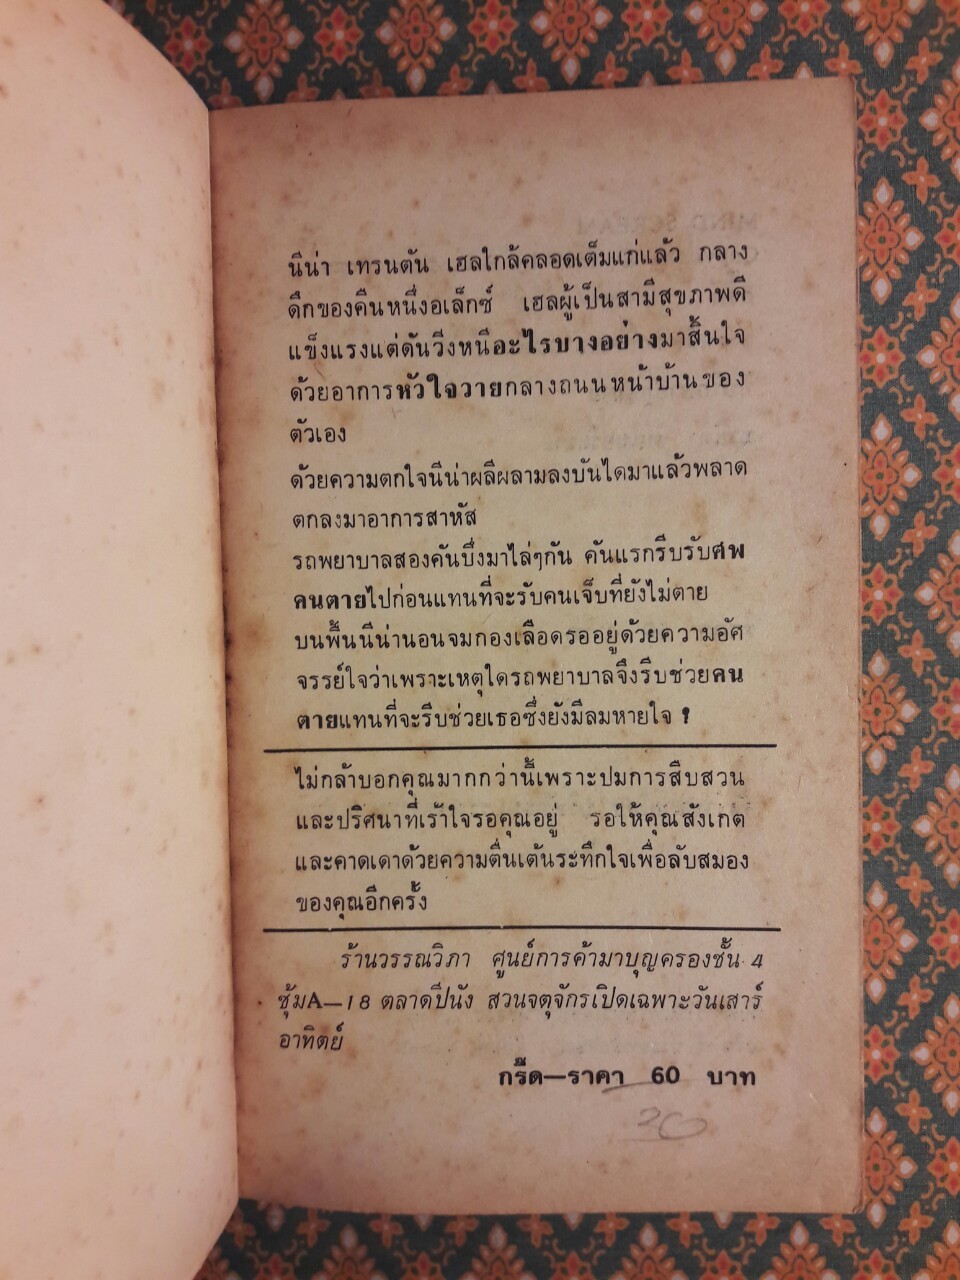 นีน่า เทรนตัน เฮลใกล้คลอดเต็มแก่แล้ว กลาง
ดึกของคืนหนึ่งอเล็กซ์ เฮลผู้เป็นสามีสุขภาพดี
แข็งแรงแต่ดันวิ่งหนีอะไรบางอย่างมาสิ้นใจ
ด้วยอาการหัวใจวายกลางถนนหน้าบ้านของ
ตัวเอง
ด้วยความตกใจนีน่าผลีผลามลงบันไดมาแล้วพลาด
ตกลงมาอาการสาหัส
รถพยาบาลสองคันบึ่งมาไล่ๆกัน คันแรกรีบรับศพ
คนตายไปก่อนแทนที่จะรับคนเจ็บที่ยังไม่ตาย
บนพื้นนีน่านอนจมกองเลือดรออยู่ด้วยความอัศ
จรรย์ใจว่าเพราะเหตุใดรถพยาบาลจึงรีบช่วยคน
ตายแทนที่จะรีบช่วยเธอซึ่งยังมีลมหายใจ ?
ไม่กล้าบอกคุณมากกว่านี้เพราะปมการสืบสวน
และปริศนาที่เร้าใจรอคุณอยู่ รอให้คุณสังเกต
และคาดเดาด้วยความตื่นเต้นระทึกใจเพื่อลับสมอง
ของคุณอีกครั้ง
ร้านวรรณวิภา ศูนย์การค้ามาบุญครองชั้น 4
ซุ้มA—18 ตลาดปีนัง สวนจตุจักรเปิดเฉพาะวันเสาร์
อาทิตย์
กรี๊ด—ราคา 60 บาท
30